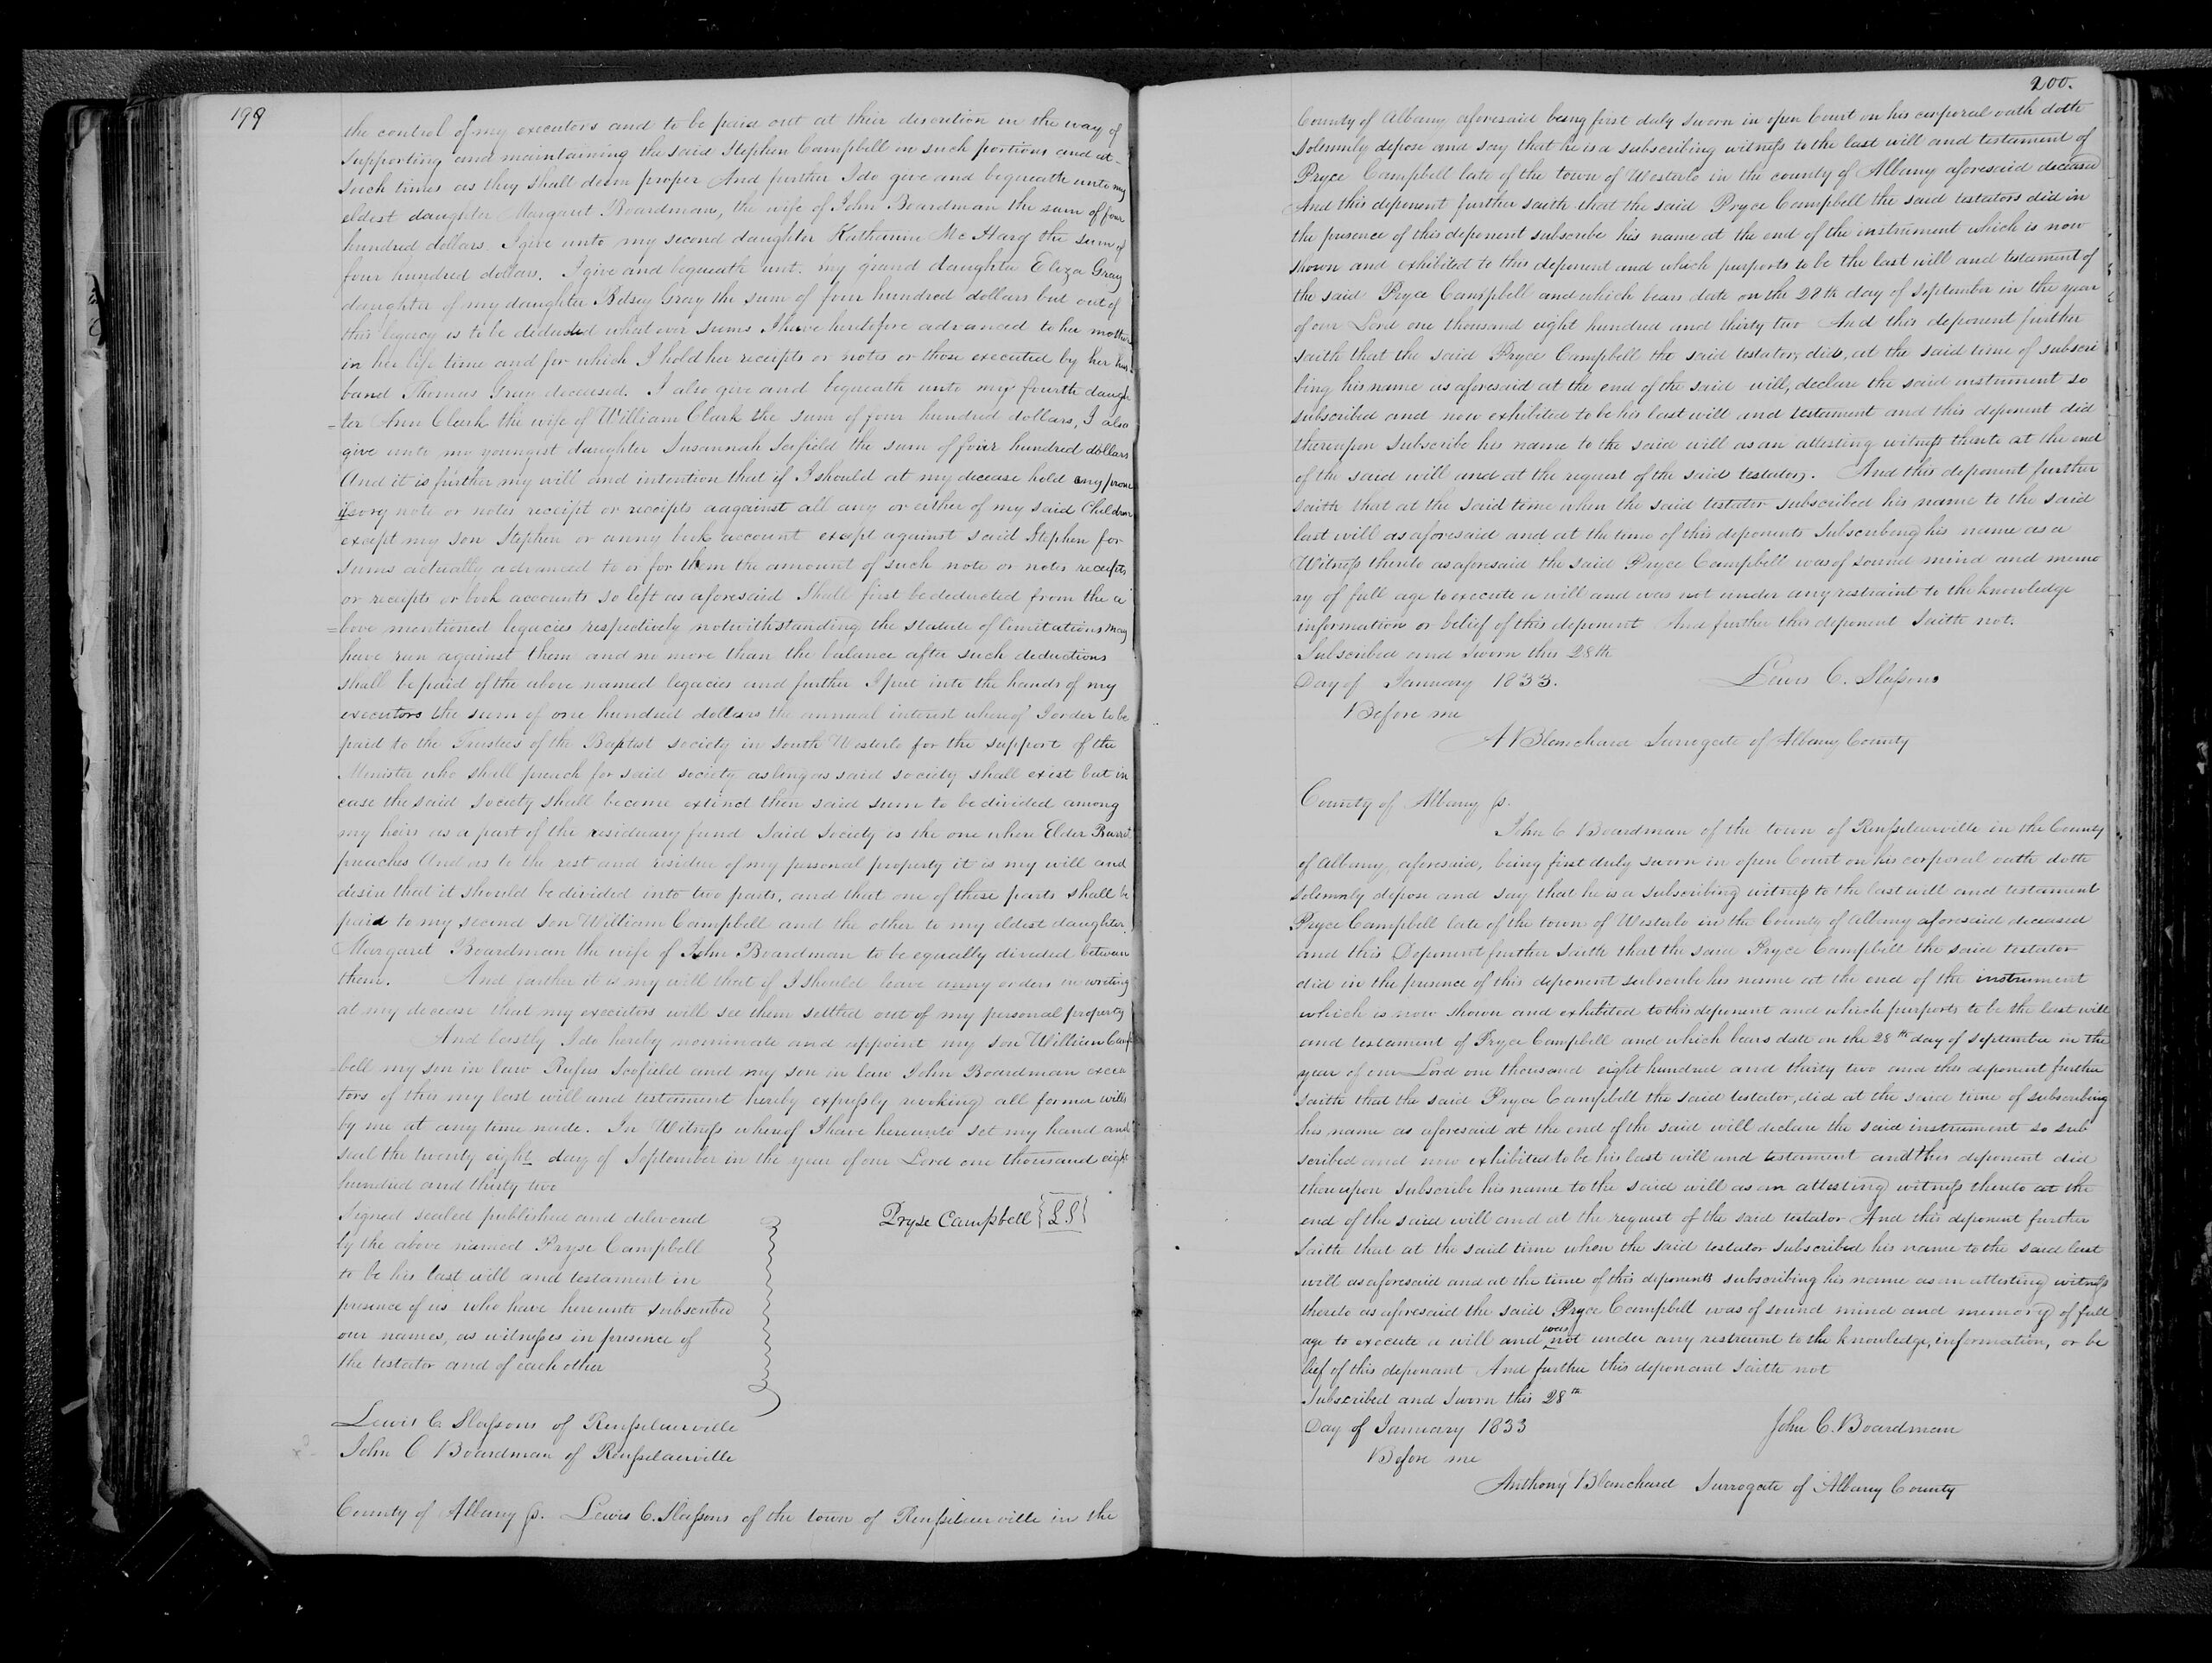 199
the control of my executors and to be paid out at their discretion in the way of
supporting and maintaining the said Stephen Campbell in such portions and at-
such times as they shall deem proper And further I do give and bequeath unto my
eldest daughter Margaret Boardman, the wife of John Boardman the sum of four
hundred dollars. I give unto my second daughter Katharine Mc Harg the sum of
four hundred dollars. I give and bequeath unt. my grand daughter Eliza Gray
daughter of my daughter Betsey Gray the sum of four hundred dollars but out of
this legacy is to be deducted what ever sums I have heretofore advanced to her mother
in her life time and for which I hold her receipts or notes or those executed by her hus
band Thomas Gray deceased. I also give and bequeath unto my fourth daugh
=ter Ann Clark the wife of William Clark the sum of four hundred dollars, I also
give unto my youngest daughter Susannah Scofield the sum of four hundred dollars
And it is further my will and intention that if I should at my decease hold any prom
issory note or notes receipt or receipts aagainst all any or either of my said Children
except my son Stephen or anny book account except against said Stephen for
sums actually advanced to or for them the amount of such note or notes receipts
or receipts or book accounts so left as aforesaid Shall first be deducted from the a
=bove mentioned legacies respectively notwithstanding the statute of limitations may
have run against them and no more than the balance after such deductions
shall be paid of the above named legacies and further I put into the hands of my
executors the sum of one hundred dollars the annual interest whereof I order to be
paid to the Trustees of the Baptist society in South Westerlo for the support of the
Minister who shall preach for said society as long as said society shall exist but in
case the said society shall become extinct then said sum to be divided among
my heirs as a part of the residuary fund Said Society is the one where Elder
preaches And as to the rest and residue of my personal property it is my will and
desire that it should be divided into two parts, and that one of these parts shall be
paid to my second son William Campbell and the other to my eldest daughter
Margaret Boardman the wife of John Boardman to be equally divided between
them. And further it is my will that if I should leave anny orders in writing
at my decease that my executors will see them settled out of my personal property
And lastly I do hereby nominate and appoint my son William Camp
=bell my son in law Rufus Scofield and my son in law John Boardman execu
tors of this my last will and testament hereby expressly revoking all former wills
by me at any time made. In Witness whereof I have hereunto set my hand and
seal the twenty eight day of September in the year of our Lord one thousand eight
hundred and thirty two
Signed sealed published and delivered
by the above named Pryse Campbell
to be his last will and testament in
presence of us who have hereunto subscribed
our names, as witnesses in presence of
the testator and of each other
Pryse Campbell {LS}
Lewis C. Slassons of Rensselaerville
John C Boardman of Rensselaerville
County of Albany ss. Lewis C. Slassons of the town of Rensselaerville in the
200.
County of Albany aforesaid being first duly sworn in open Court on his corporal oath doth
solemnly depose and say that he is a subscribing witness to the last will and testament of
Pryce Campbell late of the town of Westerlo in the county of Albany aforesaid deceased
And this deponent further saith that the said Pryce Campbell the said testators did in
the presence of this deponent subscribe his name at the end of the instrument which is now
shown and exhibited to this deponent and which purports to be the last will and testament of
the said Pryce Campbell and which bears date on the 28th day of September in the year
of our Lord one thousand eight hundred and thirty two And this deponent further
saith that the said Pryce Campbell the said testator, did, at the said time of subscri
bing his name as aforesaid at the end of the said will, declare the said instrument so
subscribed and now exhibited to be his last will and testament and this deponent did
thereupon subscribe his name to the said will as an attesting witness thereto at the end
of the said will and at the request of the said testator. And this deponent further
saith that at the said time when the said testator subscribed his name to the said
last will as aforesaid and at the time of this deponents subscribing his name as a
Witness thereto as aforesaid the said Pryce Campbell was of sound mind and memo
ry of full age to execute a will and was not under any restraint to the knowledge
information or belief of this deponent And further this deponent saith not.
Subscribed and Sworn this 28th
Day of January 1833. Lewis C. Slassons
Before me
A Blanchard Surrogate of Albany County
County of Albany ss.
John C Boardman of the town of Rensselaerville in the County
of Albany, aforesaid, being first duly sworn in open Court on his corporal oath doth
solemnly depose and say that he is a subscribing witness to the last will and testament
Pryce Campbell late of the town of Westerlo in the County of Albany aforesaid deceased
and this Deponent further saith that the said Pryce Campbell the said testator
did in the presence of this deponent subscribe his name at the end of the instrument
which is now shown and exhibited to this deponent and which purports to be the last will
and testament of Pryce Campbell and which bears date on the 28th day of September in the
year of our Lord one thousand eight hundred and thirty two and this deponent further
saith that the said Pryce Campbell the said testator, did at the said time of subscribing
his name as aforesaid at the end of the said will declare the said instrument so sub
scribed and now exhibited to be his last will and testament and this deponent did
thereupon subscribe his name to the said will as an attesting witness thereto at the
end of the said will and at the request of the said testator And this deponent further
saith that at the said time when the said testator subscribed his name to the said last
will as aforesaid and at the time of this deponents subscribing his name as an attesting witness
thereto as aforesaid the said Pryce Campbell was of sound mind and memory of full
age to execute a will and was not under any restraint to the knowledge, information, or be
lief of this deponant And further this deponant saith not
Subscribed and Sworn this 28th
Day of January 1833 John C. Boardman
Before me
Anthony Blanchard Surrogate of Albany County